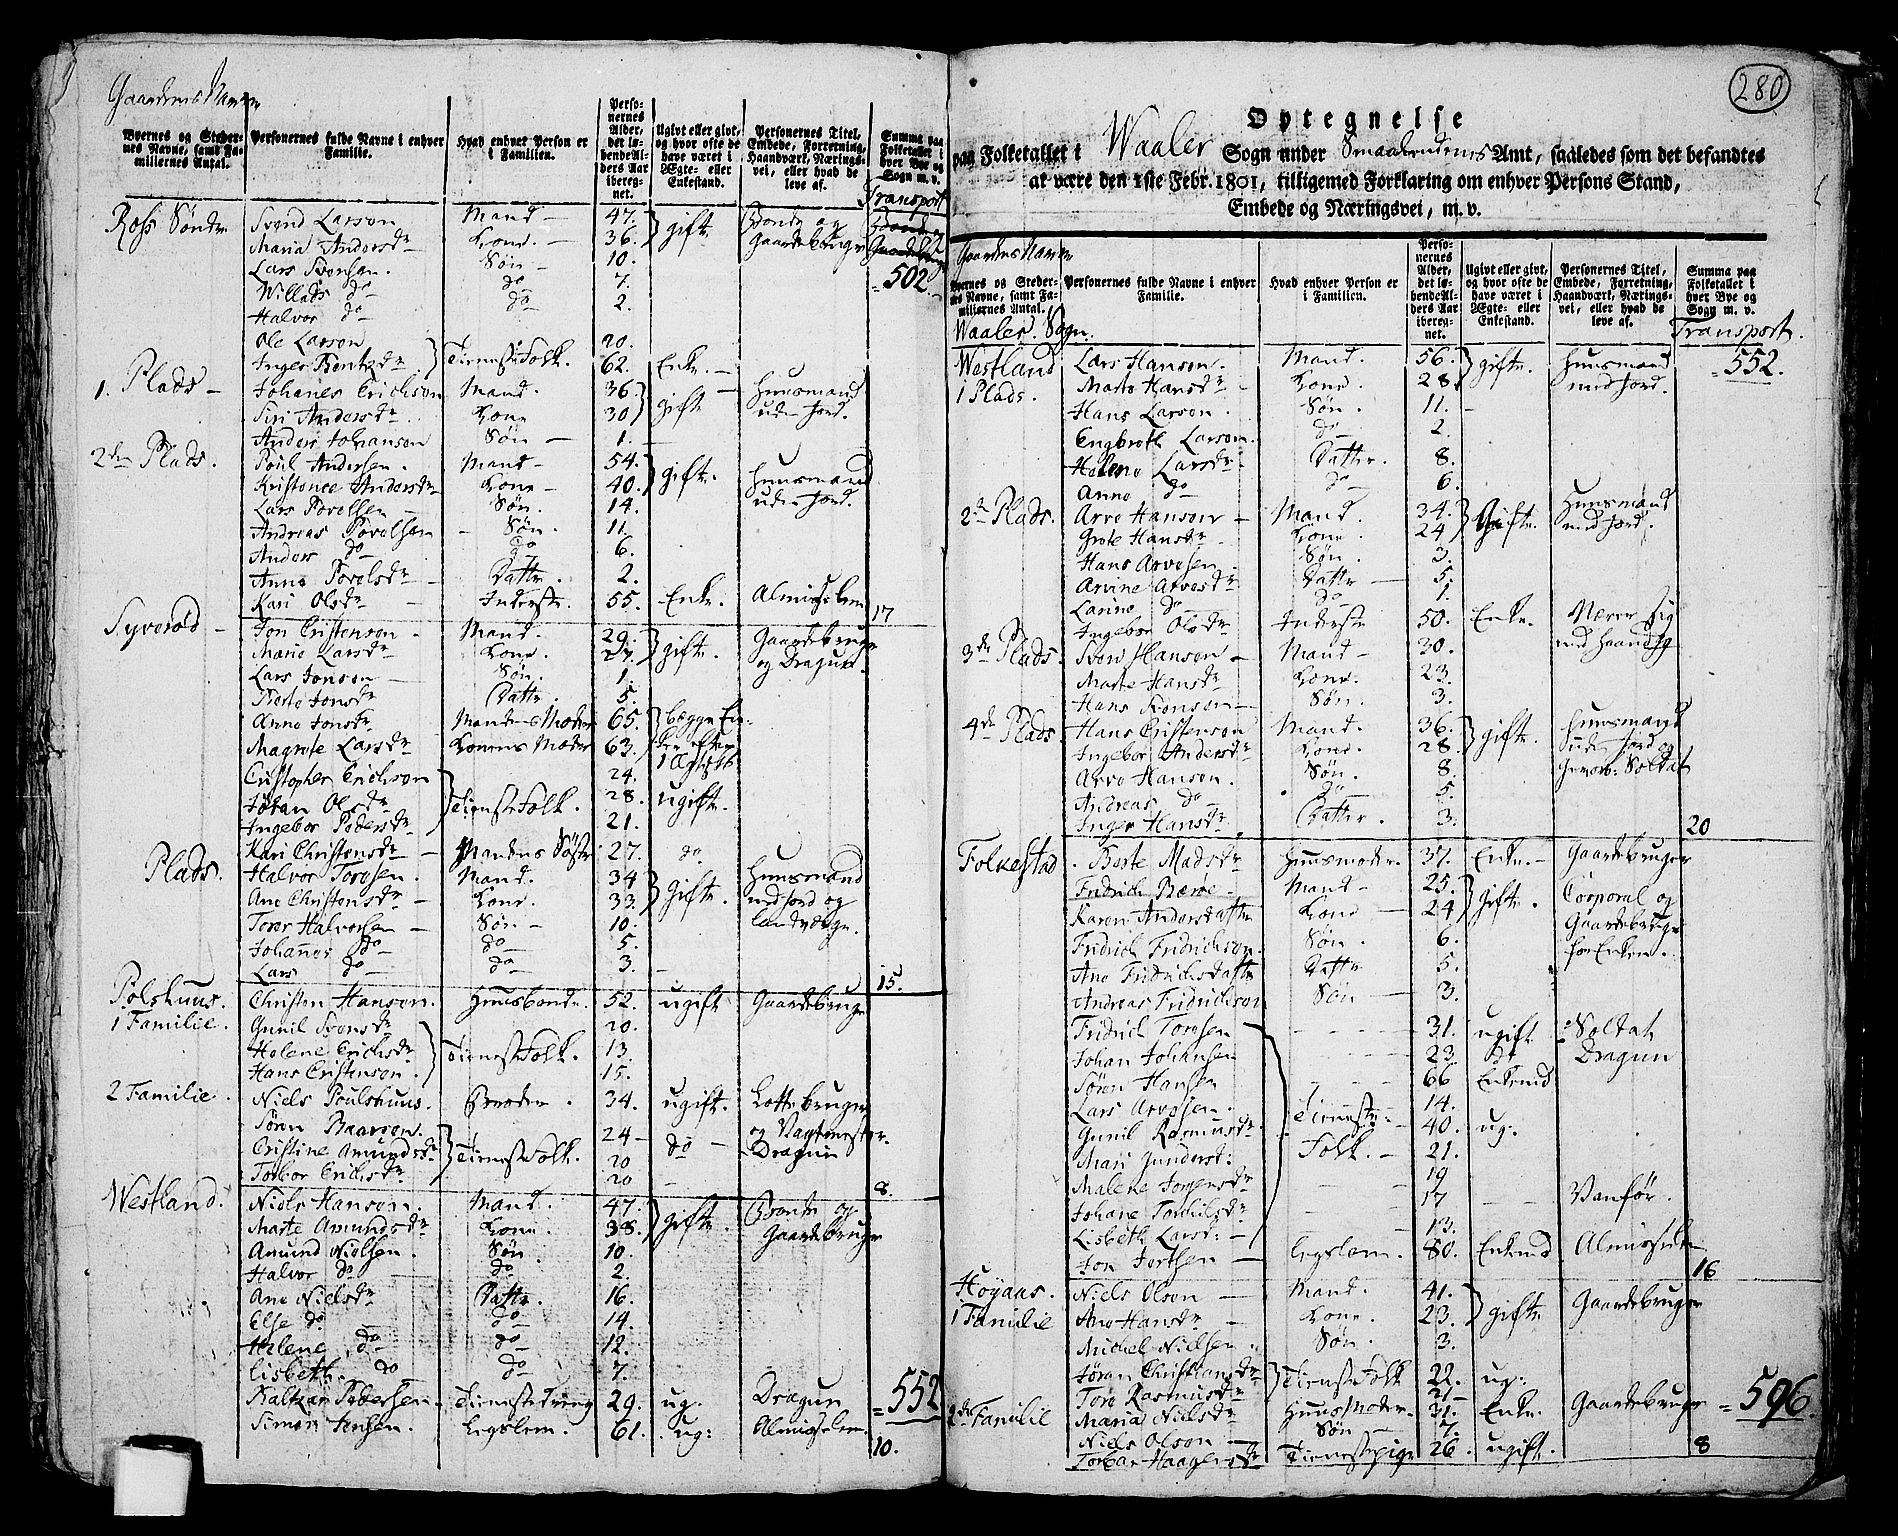 Gaardenes Navne
Byernes og Steder-
nes Navne, samt Fa-
miliernes Antal.
Personernes fulde Navne i enhver
Familie.
Hvad enhver Person er
i Familien.
Perso-
nernes
Alder,
det lø-
bende Al-
ders Aar
ibereg-
net.
Ugivt eller givt,
og hvor ofte de
have været i
Ægte- eller
Enkestand.
Personernes Titel,
Embede, Forretning,
Haandværk, Nærings-
vei, eller hvad de
leve af.
Summa paa
Folketallet i
hver Bye og
Sogn m. v.
Transport
502
Ross Søndre Svend Larson Mand 47. gift Bonde og
Maria Andersdr Kone. 36. Gaardebruger
Lars Svensen. Søn 10.
Willads do do 7.
Halvor do do 2.
Ole Larson 20.
Inger Bentzdr Tieneste Folk. 62. Enke.
1. Plads Johanes Erichson Mand. 36. gift Huusmand
Siri Andersdr Kone 30 uden Jord.
Anders Johanson Søn 1.
2den Plads. Poul Andersen. Mand 54. gift. Huusmand
Kristence Andersdr Kone 40. uden Jord.
Lars Povelsen Søn. 14.
Andreas Povelsen Søn. 11.
Anders do do 6.
Anne Povelsdr Datter. 2.
Kari Olsdr Inderste. 55. Enke. Almisselem 17
Syverød Jon Cristenson Mand. 29. gift. Gaardebruger
Marie Larsdr Kone. 27. og Dragun.
Lars Jonson Søn. 1.
Berte Jonsdr Datter. 5.
Anne Jonsdr Mandens Moder 65. begge En-
Magrete Larsdr Konens Moder 63. ker efter
1 Ægtesk
Cristopher Erichson 24.
Johan Olsdr Tieneste Folk. 28. ugifte.
Ingebor Pedersdr 21.
Kari Christensdr Mandens Søster 27. do
Plads. Halvor Torosen. Mand. 34 gifte. Huusmand
Ane Christensdr Kone. 33. med Jord og
Torer Halvorsen Søn 10. landværge.
Johannes do do 5.
Lars do do 3. 15.
Polshuus. Christen Hanson. Huusbonde. 52. ugift Gaardebruger
1 Familie. Gunil Svensdr 20.
Helene Erichsdr Tieneste Folk. 13.
Hans Cristenson. 15.
2 Familie. Niels Poulshuus. Broder. 34. ugift. Lottebruger
og Vagtmester.
Søren Baarson. 24 do Dragun
Cristine Amundsdr Tieneste Folk. 20
Torbor Erichsdr 20 8.
Westland. Niels Hanson. Mand. 47. gifte. Bonde og
Marte Amundsdr Kone. 38. Gaardebruger
Amund Nielsen. Søn 10.
Halvor do do 2.
Ane Nielsdr Datter. 16.
Else do do 14.
Helene do do 12.
Lisbeth do do 7.
Baltzar Pedersen. Tieneste Dreng 29. ug. Dragun = 552
Simen Jensen. Legslem. 61. ug: Almisselem. 10.
280
Optegnelse
paa Folketallet i Waaler Sogn under Smaalendenes Amt, saaledes som det befandtes
at være den 1ste Febr. 1801, tilligemed Forklaring om enhver Persons Stand,
Embede og Næringsvei, m. v.
Gaardenes Navne
Byernes og Steder-
nes Navne, samt Fa-
miliernes Antal.
Personernes fulde Navne i enhver
Familie.
Hvad enhver Person er
i Familien.
Perso-
nernes
Alder,
det lø-
bende Al-
ders Aar
ibereg-
net.
Ugivt eller givt,
og hvor ofte de
have været i
Ægte- eller
Enkestand.
Personernes Titel,
Embede, Forretning,
Haandværk, Nærings-
vei, eller hvad de
leve af.
Summa paa
Folketallet i
hver Bye og
Sogn m. v.
Waaler Sogn. Transport.
Westland Lars Hanson. Mand. 56. gifte. Huusmand 552.
1 Plads. Marte Hansdr Kone. 28. med Jord.
Hans Larson. Søn. 11.
Engbreth Larson. do 2.
Helene Larsdr. Datter. 8.
Anne do do 6.
2de Plads. Arve Hanson Mand. 34. Gifte. Huusmand
Grete Hansdr Kone. 24 med Jord.
Hans Arvesen. Søn. 3.
Arvine Arvesdr Datter 5.
Larine do do 1.
Ingebor Olsdr Inderste 50. Enke. Nærer sig
3de Plads. Sven Hanson Mand 30. med Haandtg
Marte Hansdr Kone. 23.
Hans Svenson Søn. 3.
4de Plads. Hans Cristenson Mand. 36. gifte. Huusmand
Ingebor Andersdr Kone. 28. uden Jord og
Arve Hanson. Søn. 8. Soldat
Andreas do do 5.
Inger Hansdr. Datter. 3. 20
Folkestad. Berte Madsdr Huusmoder. 37. Enke. Gaardebruger
Fridrich Barøe. Mand 25. gifte. Corporal og
Karen Andersdatter Kone 24 Gaardebruger
Fridrich Fridrichson. Søn. 6. for Enken.
Ane Fridrichsdatter Datter 5.
Andreas Fridrichson Søn 3.
Fridrich Torosen 31. ugift Soldat
Johan Johansen 23. do Dragun
Søren Hansen 66 Enkemd
Lars Arvesen. Tieneste- 14.
Gunil Rasmusdr. 40. ug.
Mari Gunderst: Folk. 21.
Malene Jorgensdr 19
Johane Torkilsdr 17 Vanfør.
Lisbeth Larsd: 13.
Jon Jortsen Legslem. 80. Enkemd Almisselem 16
Høyaas. Niels Olson Mand. 41. gifte Gaardebruger
1 Familie Ane Hansdr Kone. 23.
Michel Nielsen. Søn. 3.
Jøran Christiansdr Tieneste Folk 22. ug:
Tore Rasmusdr 21
2de Familie Maria Nielsdr Huus Moder. 31. Enke. Gaardebruger = 596.
Niels Olson Søn 7.
Torbor Haagensdr Tienestepige 26. ugift. 8